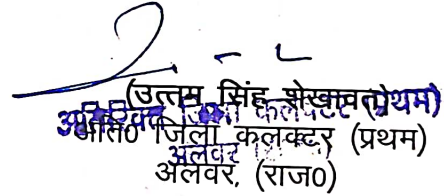 (उत्तम सिंह शेखावत)
अति० जिला कलक्टर (प्रथम)
अलवर, (राज०)
अतिरिक्त जिला कलक्टर (प्रथम)
अलवर